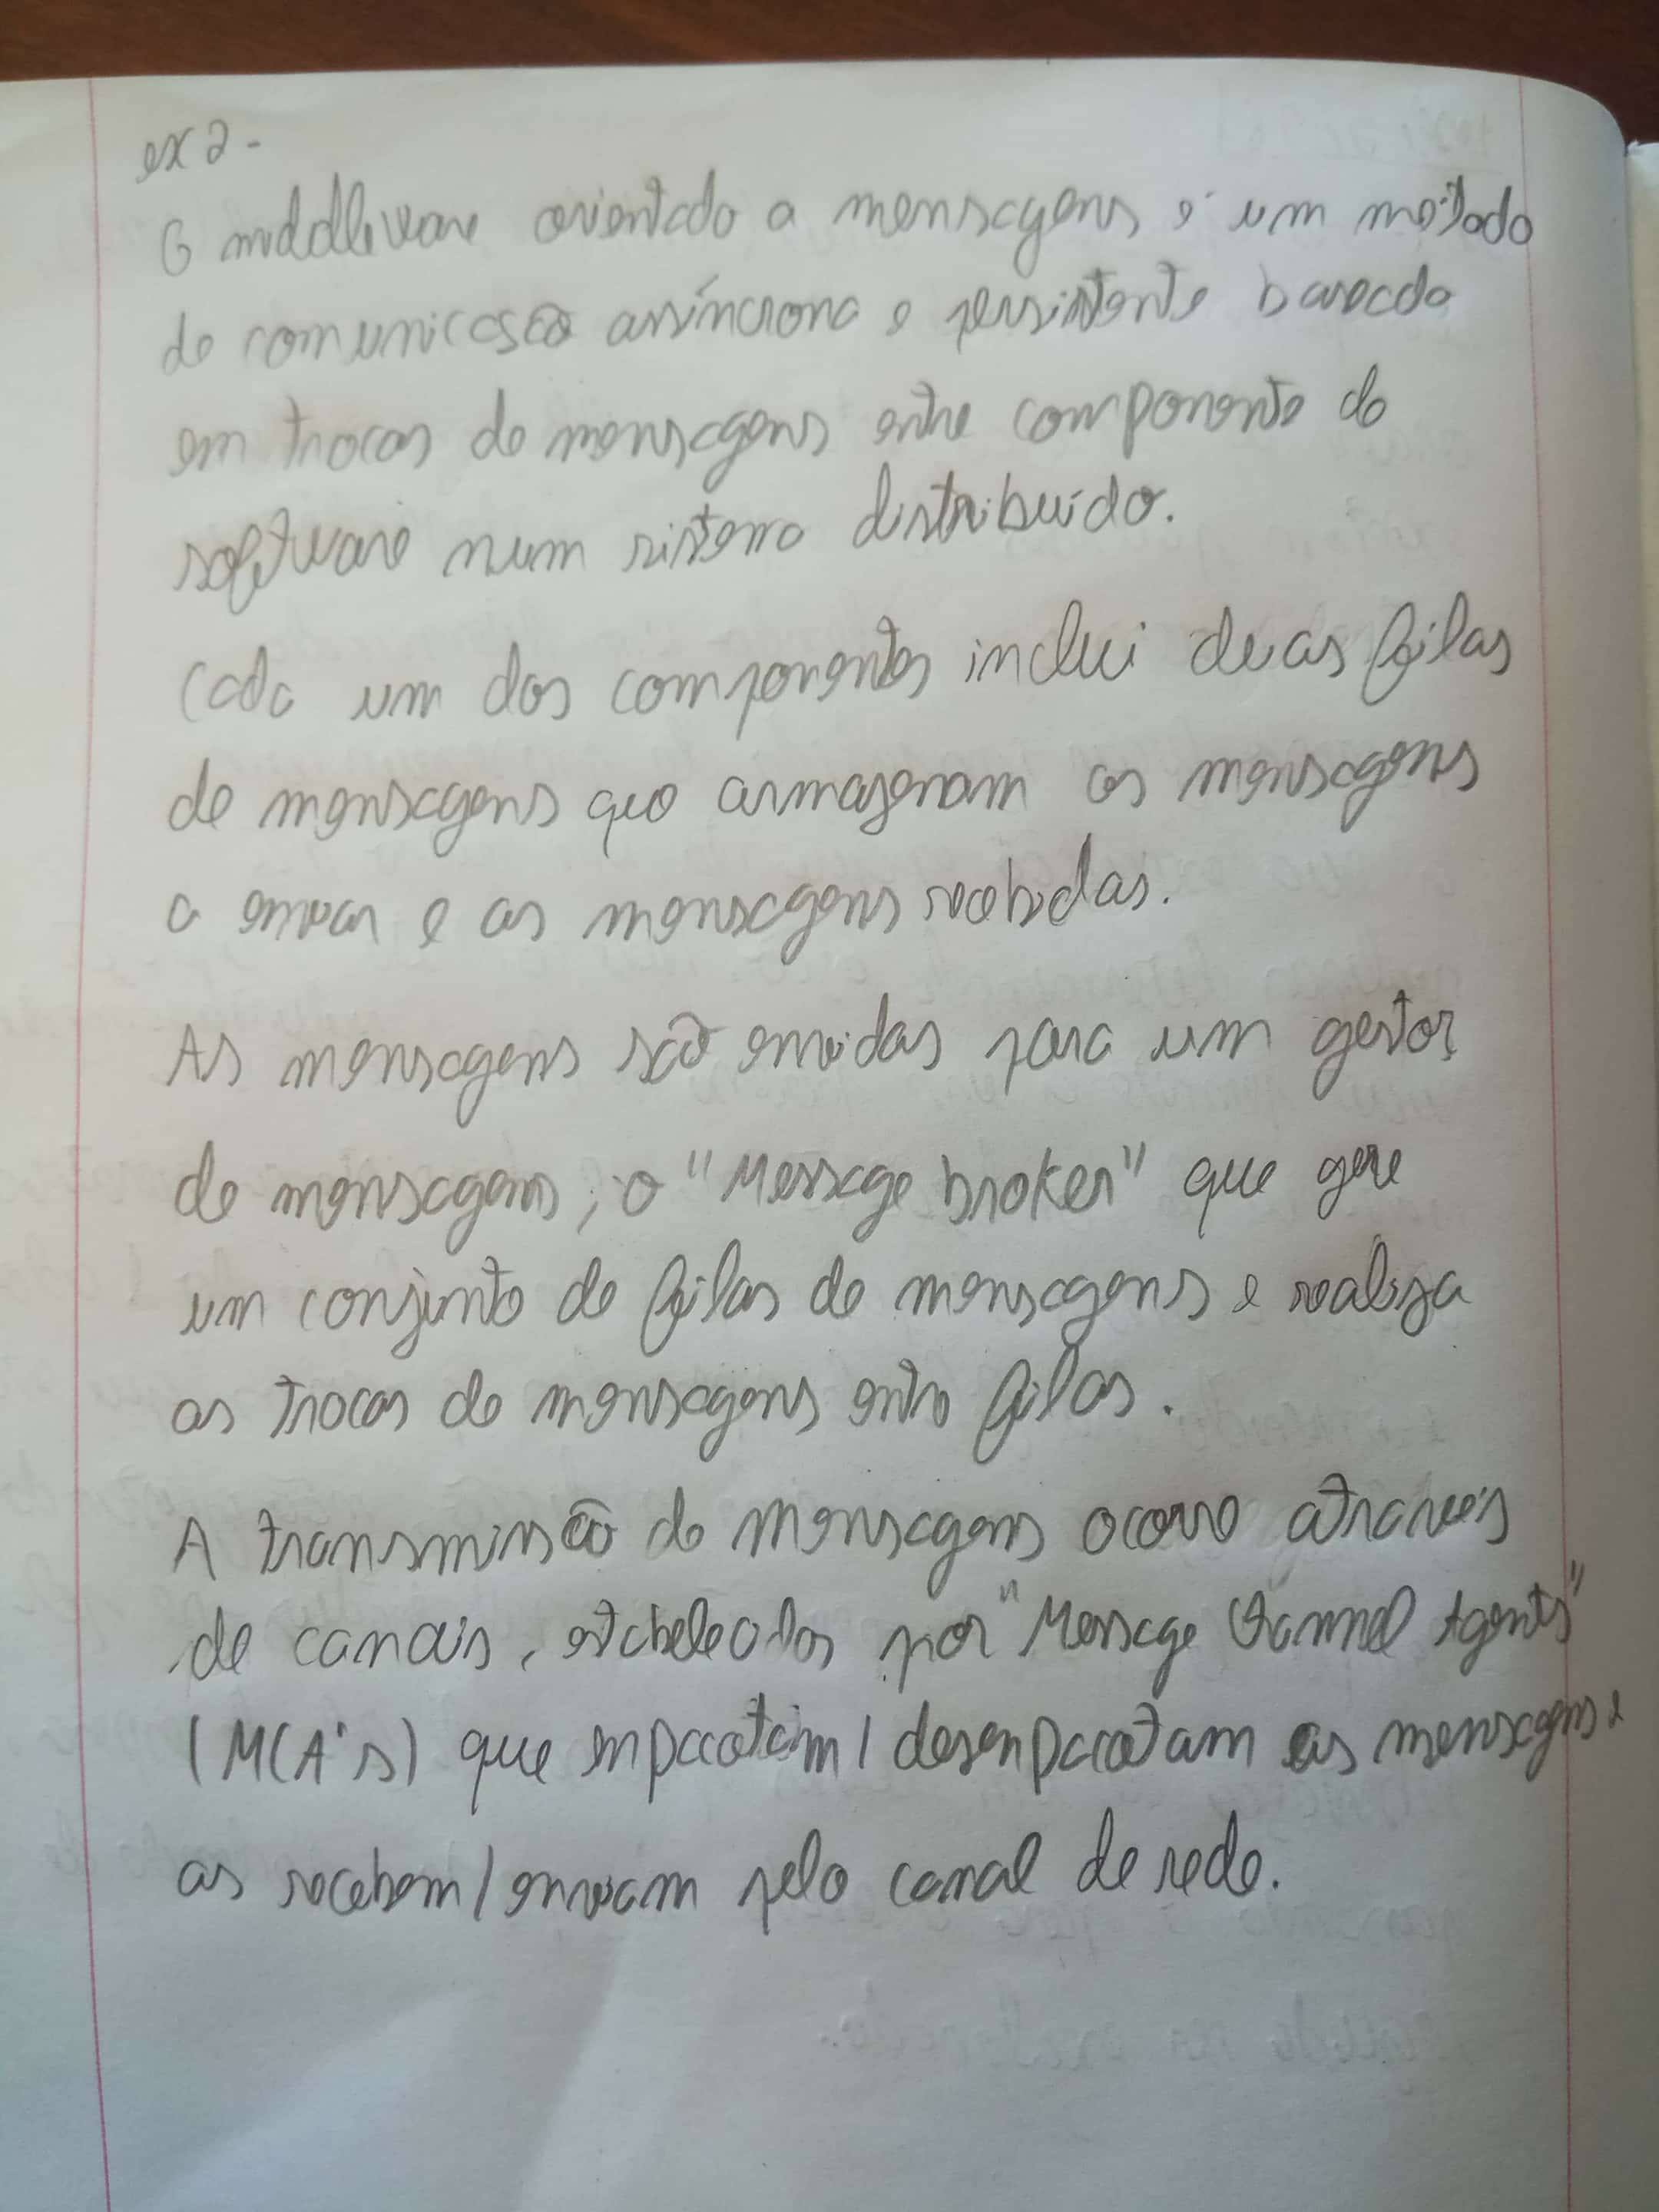 ex 2 -
O middleware orientado a mensagens é um método
de comunicação assíncrona e persistente baseado
em trocas de mensagens entre componente de
software num sistema distribuído.
Cada um dos componentes inclui duas filas
de mensagens que armazenam as mensagens
a enviar e as mensagens recebidas.
As mensagens são enviadas para um gestor
de mensagens, o "Message broker" que gere
um conjunto de filas de mensagens e realiza
as trocas de mensagens entre filas.
A transmissão de mensagens ocorre através
de canais, estabelecidos por "Message Channel Agents"
(MCA's) que enpacotam / desenpacotam as mensagens e
as recebem / enviam pelo canal de rede.